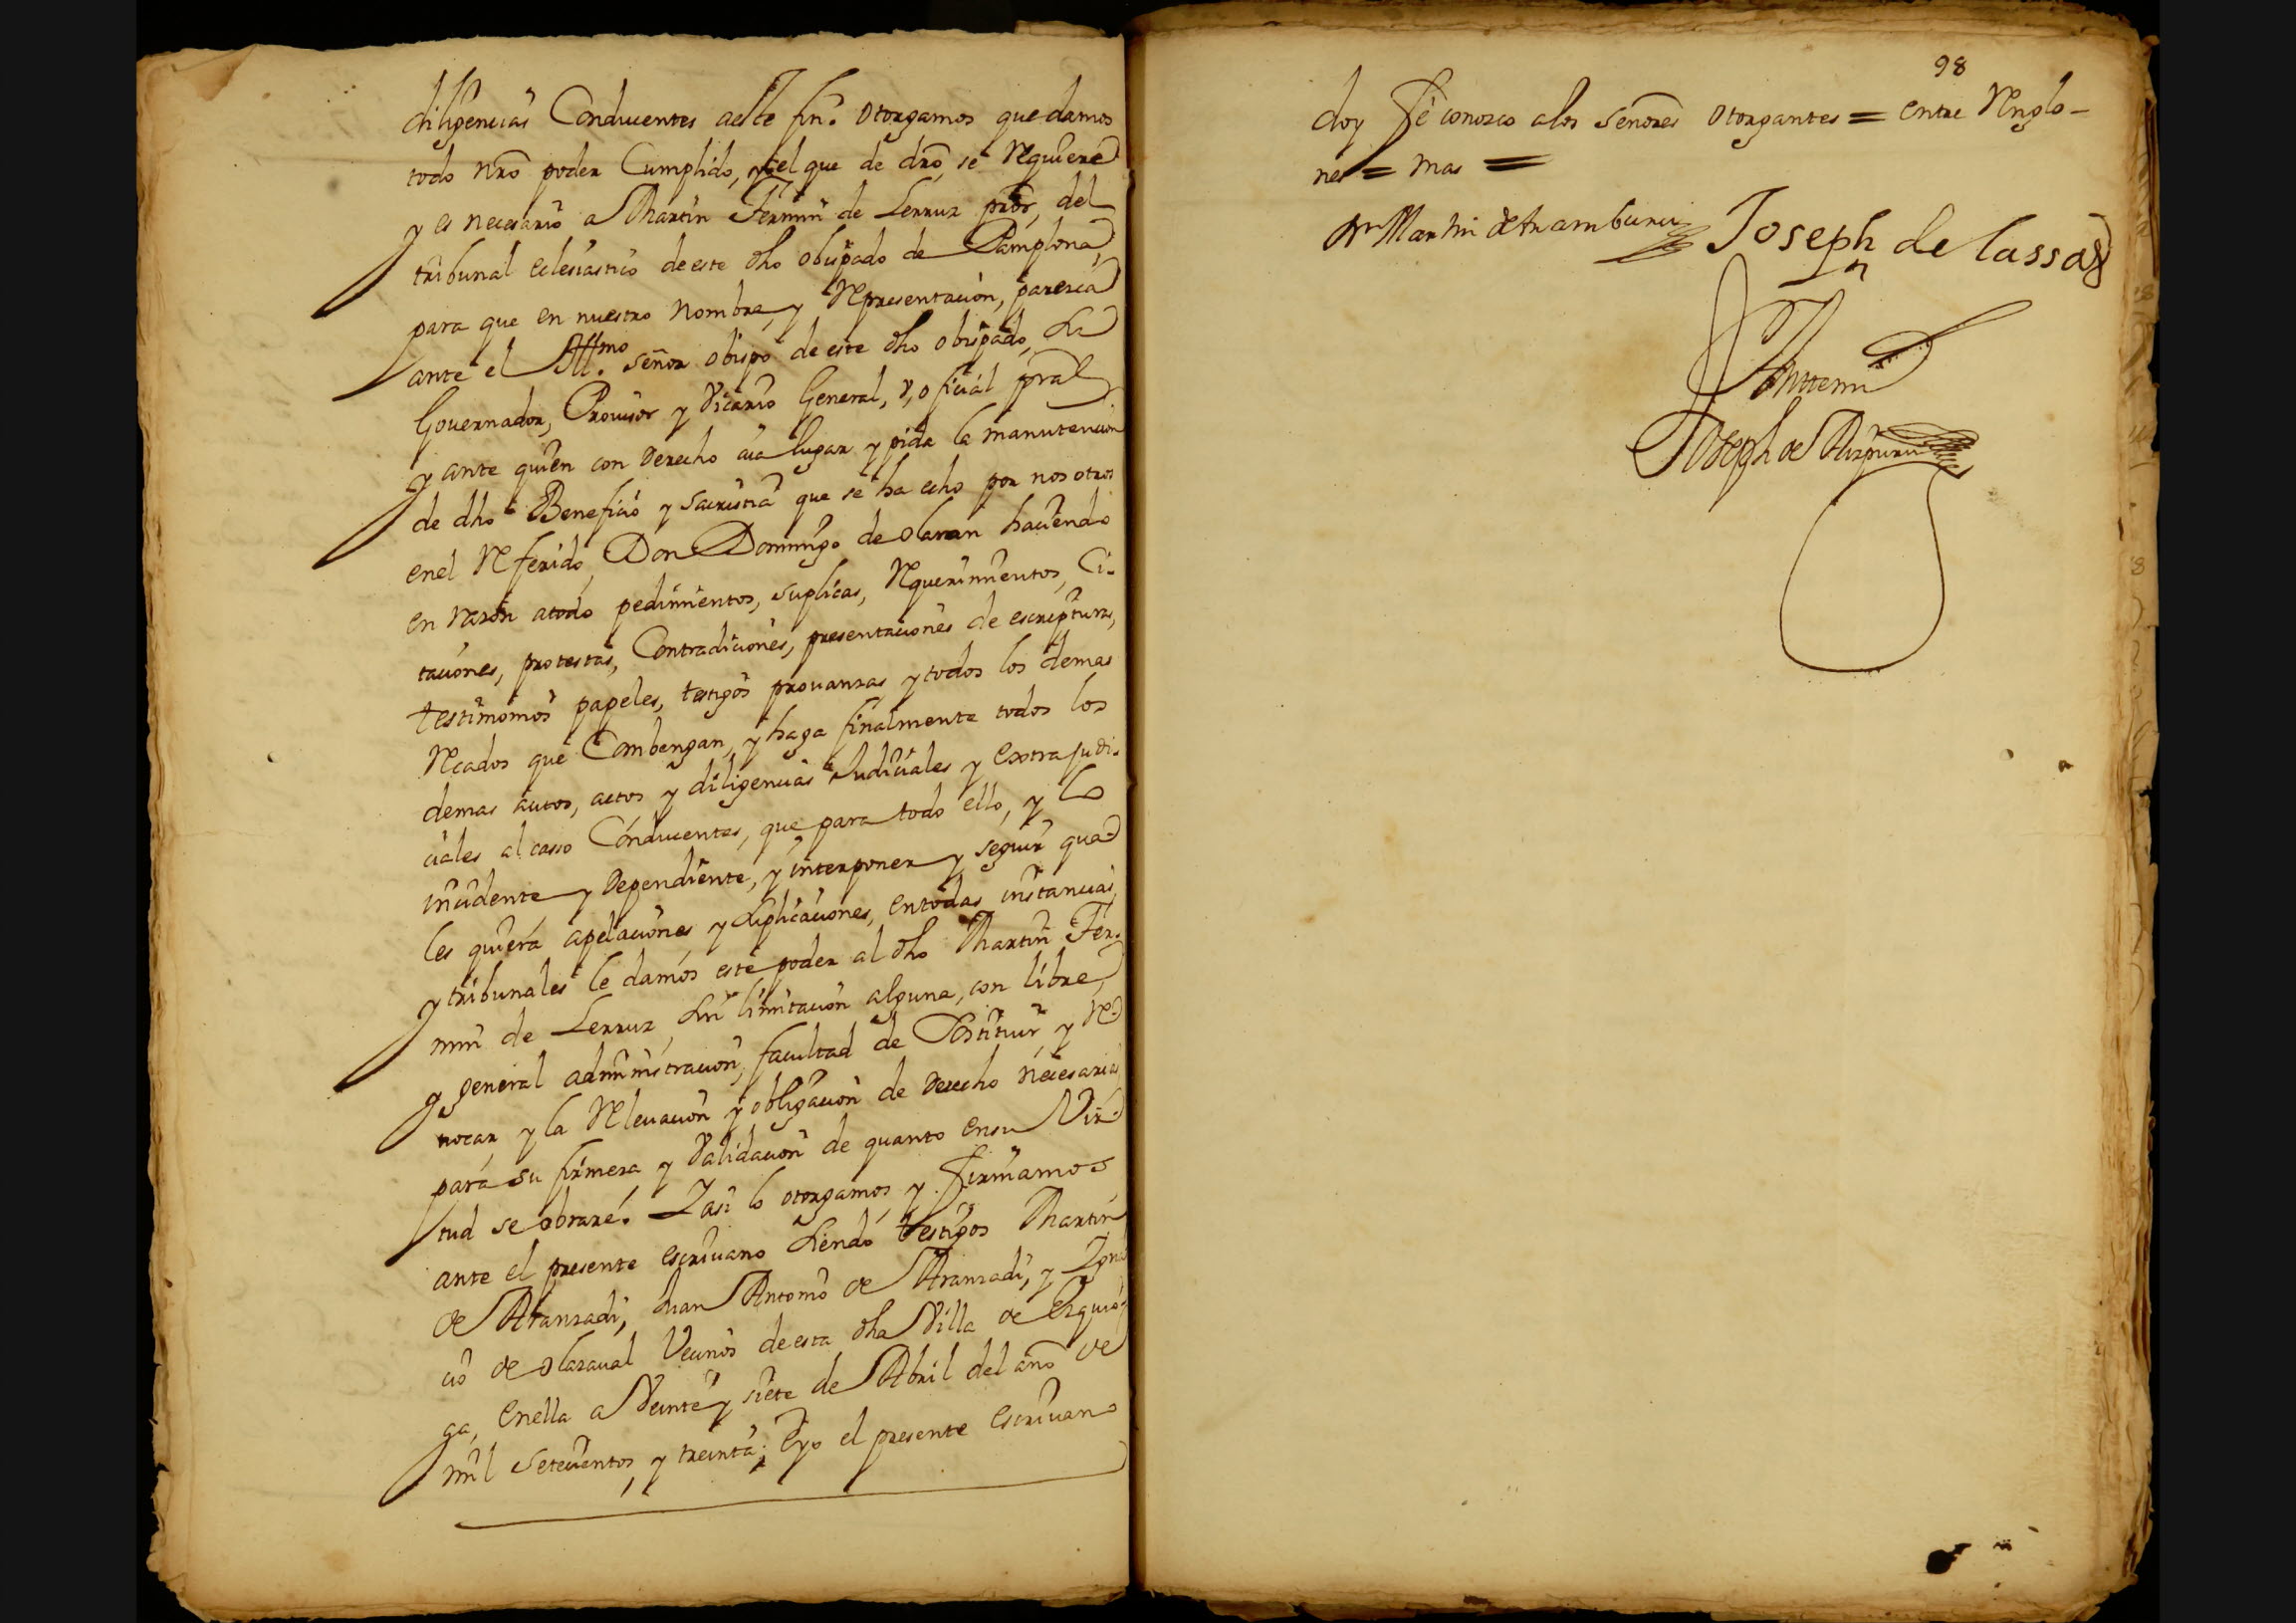 diligencias Conducentes a este fin. otorgamos que damos
todo nro poder Cumplido, y el que de dro, se Requiere
y es necesario a Martin Fermin de Lerruz pror, del
tribunal eclesiastico de este dho obispado de Pamplona,
para que en nuestro nombre, y Representacion, paresca
ante el Illmo. señor obispo de este dho obispado, Su
Governador, Provisor y Vicario General, v, oficial pral
y ante quien con derecho aia lugar y pida la manutencion
de dho Beneficio y sacristia que se ha echo por nosotros
en el Referido, Don Domingo de olaran haciendo
en razon a todo pedimientos, suplicas, Requerimientos, Ci-
taciones, protestas, Contradiciones, presentaciones de escripturas,
testimonios papeles, testigos provanzas y todos los demas
Recados que Combengan, y haga finalmente todos los
demas autos, actos y diligencias Judiciales y extrajudi-
ciales al casso Conducentes, que para todo ello, y lo
incidente y dependiente, y interponer y seguir qua-
les quiera apelaciones y suplicaciones, en todas instancias,
y tribunales le damos este poder al dho Martin Fer-
min de Lerruz, sin limitacion alguna, con libre,
y general administracion, facultad de sostituir, y Re-
vocar, y la Relevacion y obligacion de derecho necesarias
para su firmeza, y Validacion de quanto en su Vir-
tud se obrare. Y asi lo otorgamos, y firmamos
ante el presente escrivano siendo testigos Martin
de Aranzadi, Juan Antonio de Aranzadi, y Igna
cio de olazaval Vecinos de esta dha Villa de Ezquio-
ga, en ella a Veinte y siete de Abril del año de
mil setecientos, y treinta; E yo el presente escrivano
98
doy Fe conozco a los señores otorgantes = entre Renglo-
nes = mas =
Dn Martin de Aramburu Joseph de lassa
Ante mi
Joseph de Aizpuru